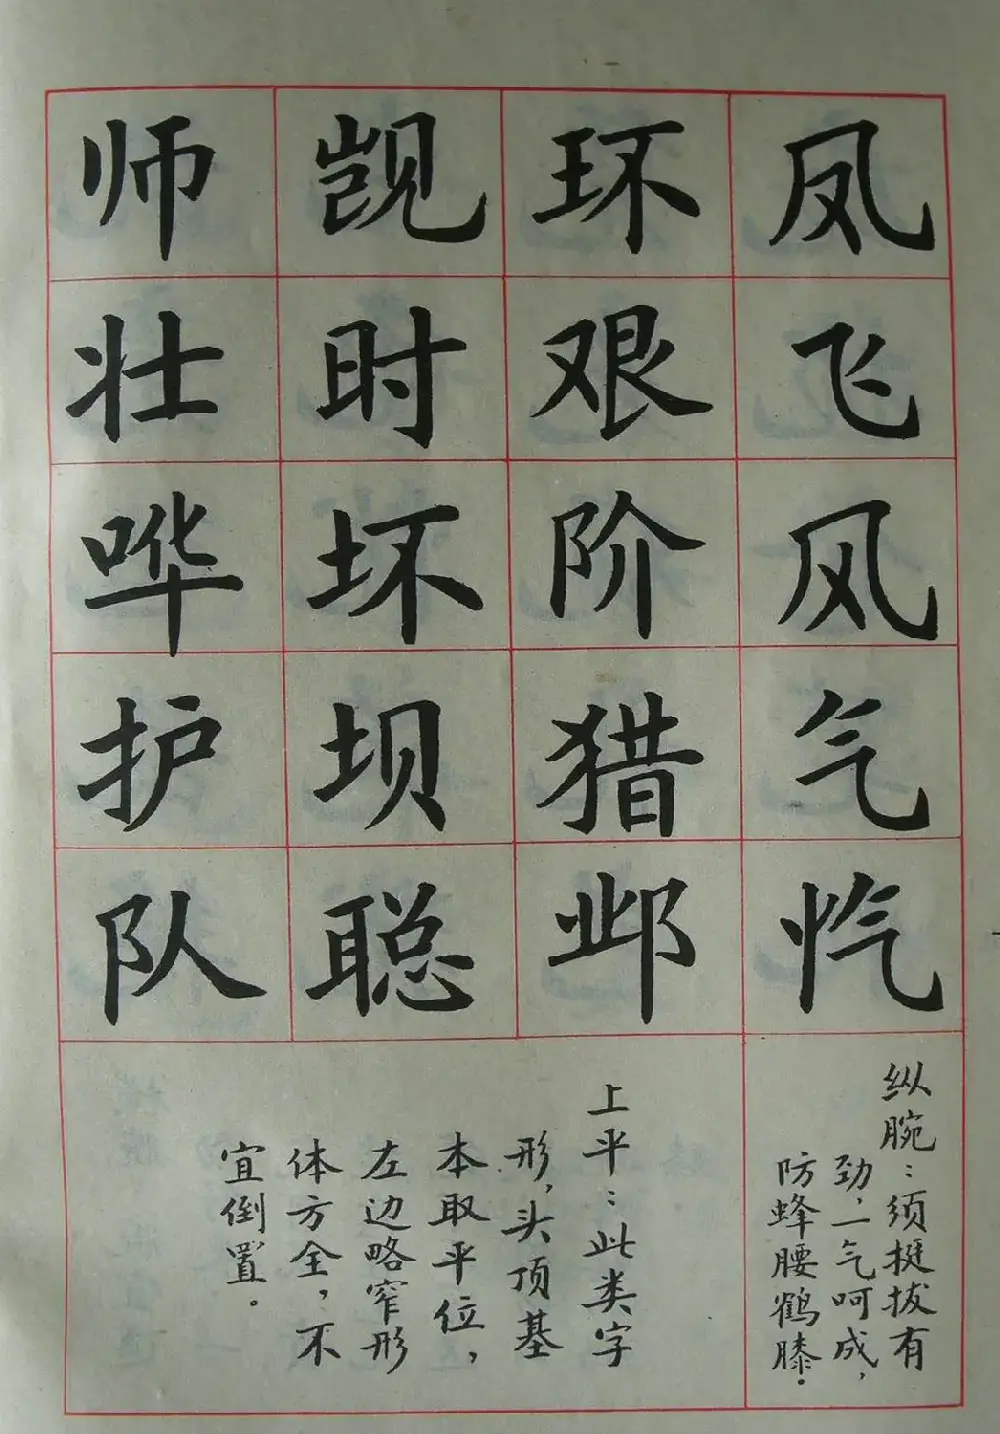 凤飞风气忾
纵腕：须挺拔有
劲，一气呵成，
防蜂腰鹤膝。
环艰阶猎邺
觊时坏坝聪
师壮哗护队
上平：此类字
形，头顶基
本取平位，
左边略窄形
体方全，不
宜倒置。